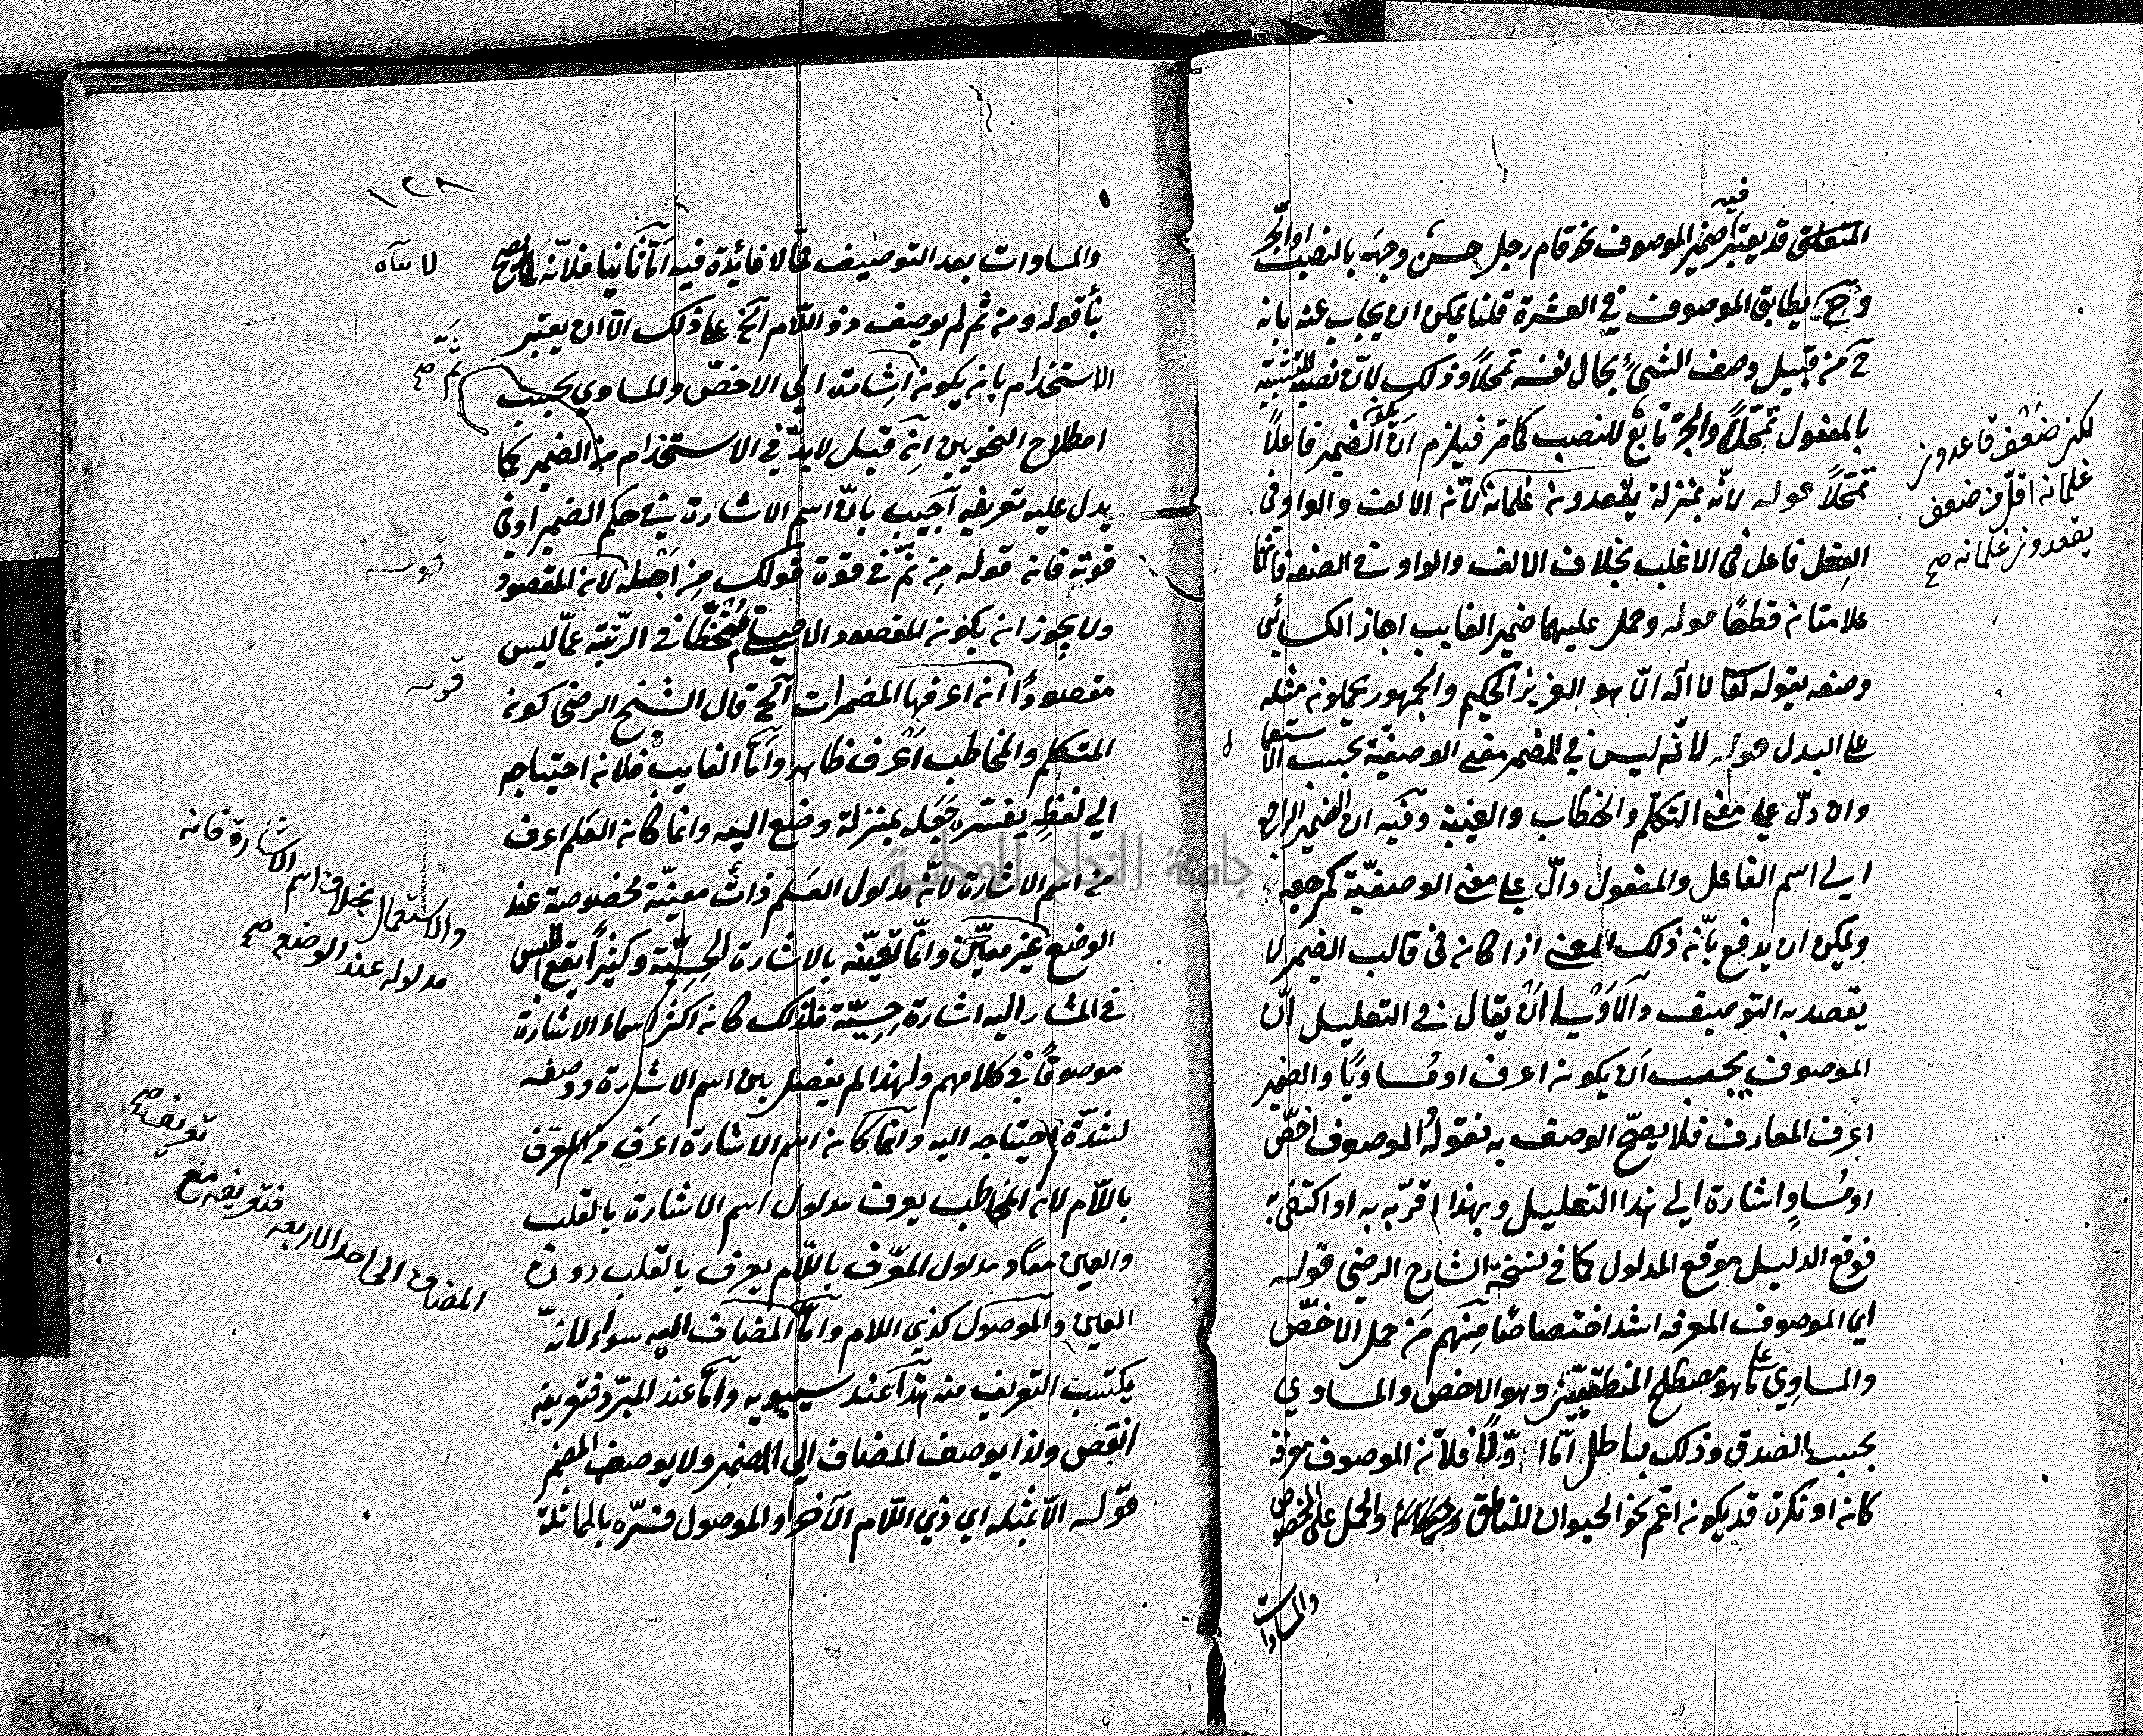 المتعلق قد يعتبر فيه ضمير الموصوف نحو قام رجل حسن وجهه بالنصب او الجر
وح يطابق الموصوف في العشرة قلنا يمكن ان يجاب عنه بانه
ح من قبيل وصف الشئ بحال نفسه تمحلا وذلك لان نصبه للتشبيه
بالمفعول تمحلا والجر تابع للنصب كما مر فيلزم ان الضمير فاعلا
تمحلا قوله لانه بمنزلة يقعدون غلمانه لان الالف والواو في
الفعل فاعل في الاغلب بخلاف الالف والواو في الصفة فانهما
علامتان قطعا قوله وحمل عليهما ضمير الغايب اجاز الكسائي
وصفه بقوله تعا لا اله الا هو العزيز الحكيم والجمهور يحملونه مثله
على البدل قوله لانه ليس في المضمر معنى الوصفية بحسب الاستعما
وان دل على معنى التكلم والخطاب والغيبة وفيه ان الضمير الراجع
الى اسم الفاعل والمفعول دال على معنى الوصفية كمرجعه
ويمكن ان يدفع بانه ذلك المعنى اذا كان في قالب الضمير لا
يقصد به التوصيف والاولى ان يقال في التعليل ان
الموصوف يجب ان يكون اعرف او مساويا والضمير
اعرف المعارف فلا يصح الوصف به فقوله الموصوف اخص
او مساو اشارة الى هذا التعليل وبهذا اقربه به او اكتفى به
فوقع الدليل موقع المدلول كما في نسخة الشارح الرضي قوله
اي الموصوف المعرفة اشد اختصاصا منهم من حمل الاخص
والمساوي على ما هو مصطلح المنطقيين وهو الاخص والمساوي
بحسب الصدق وذلك باطل اما اولا فلان الموصوف معرفة
كان او نكرة قد يكون اعم نحو الحيوان الناطق والحمل على الخصوص
والمساوات
لكن ضعف قاعدون
غلمانه اقل من ضعف
يقعدون غلمانه صح
١٢٨
والمساوات بعد التوصيف مما لا فائدة فيه اما ثانيا فلانه لا يصح
بناء قوله ومن ثم لم يوصف ذو اللام الخ على ذلك الا ان يعتبر
الاستخدام بان يكون اشارة الى الاخص والمساوي بحسب
اصطلاح النحويين ان قيل لا بد في الاستخدام من الضمير كما
يدل عليه تعريفه اجيب بان اسم الاشارة في حكم الضمير او في
قوته فان قوله من ثم في قوة قولك من اجله لان المقصود
ولا يجوز ان يكون المقصود الاصلي منحطا في الرتبة عما ليس
مقصودا ان اعرفها المضمرات الخ قال الشيخ الرضي كون
المتكلم والمخاطب اعرف ظاهر واما الغايب فلان احتياجه
الى لفظ يفسره جعله بمنزلة وضع اليد وانما كان العلم اعرف
من اسم الاشارة لان مدلول العلم ذات معينة مخصوصة عند
الوضع غير معين وانما تعينه بالاشارة الحسية وكثيرا يقع اللبس
في المشار اليه اشارة حسية فلذلك كان اكثر اسماء الاشارة
موصوفا في كلامهم ولهذا لم يفصل بين اسم الاشارة ووصفه
لشدة احتياجه اليه وانما كان اسم الاشارة اعرف من المعرف
باللام لان المخاطب يعرف مدلول اسم الاشارة بالقلب
والعين معا ومدلول المعرف باللام يعرف بالقلب دون
العين والموصول كذي اللام واما المضاف اليه سواء لانه
يكتسب التعريف منه هذا عند سيبويه واما عند المبرد فتعريفه
انقص ولذا يوصف المضاف الى المضمر ولا يوصف المضمر
قوله الا بمثله اي ذي اللام الآخر او الموصول فسره بالمماثلة
قوله
قوله
والاستعمال بخلاف اسم الاشارة فانه
مدلوله عند الوضع صح
المضاف الى احد الاربعة فتعريفه مع
تعريف صح
جامعة النجاح الوطنية